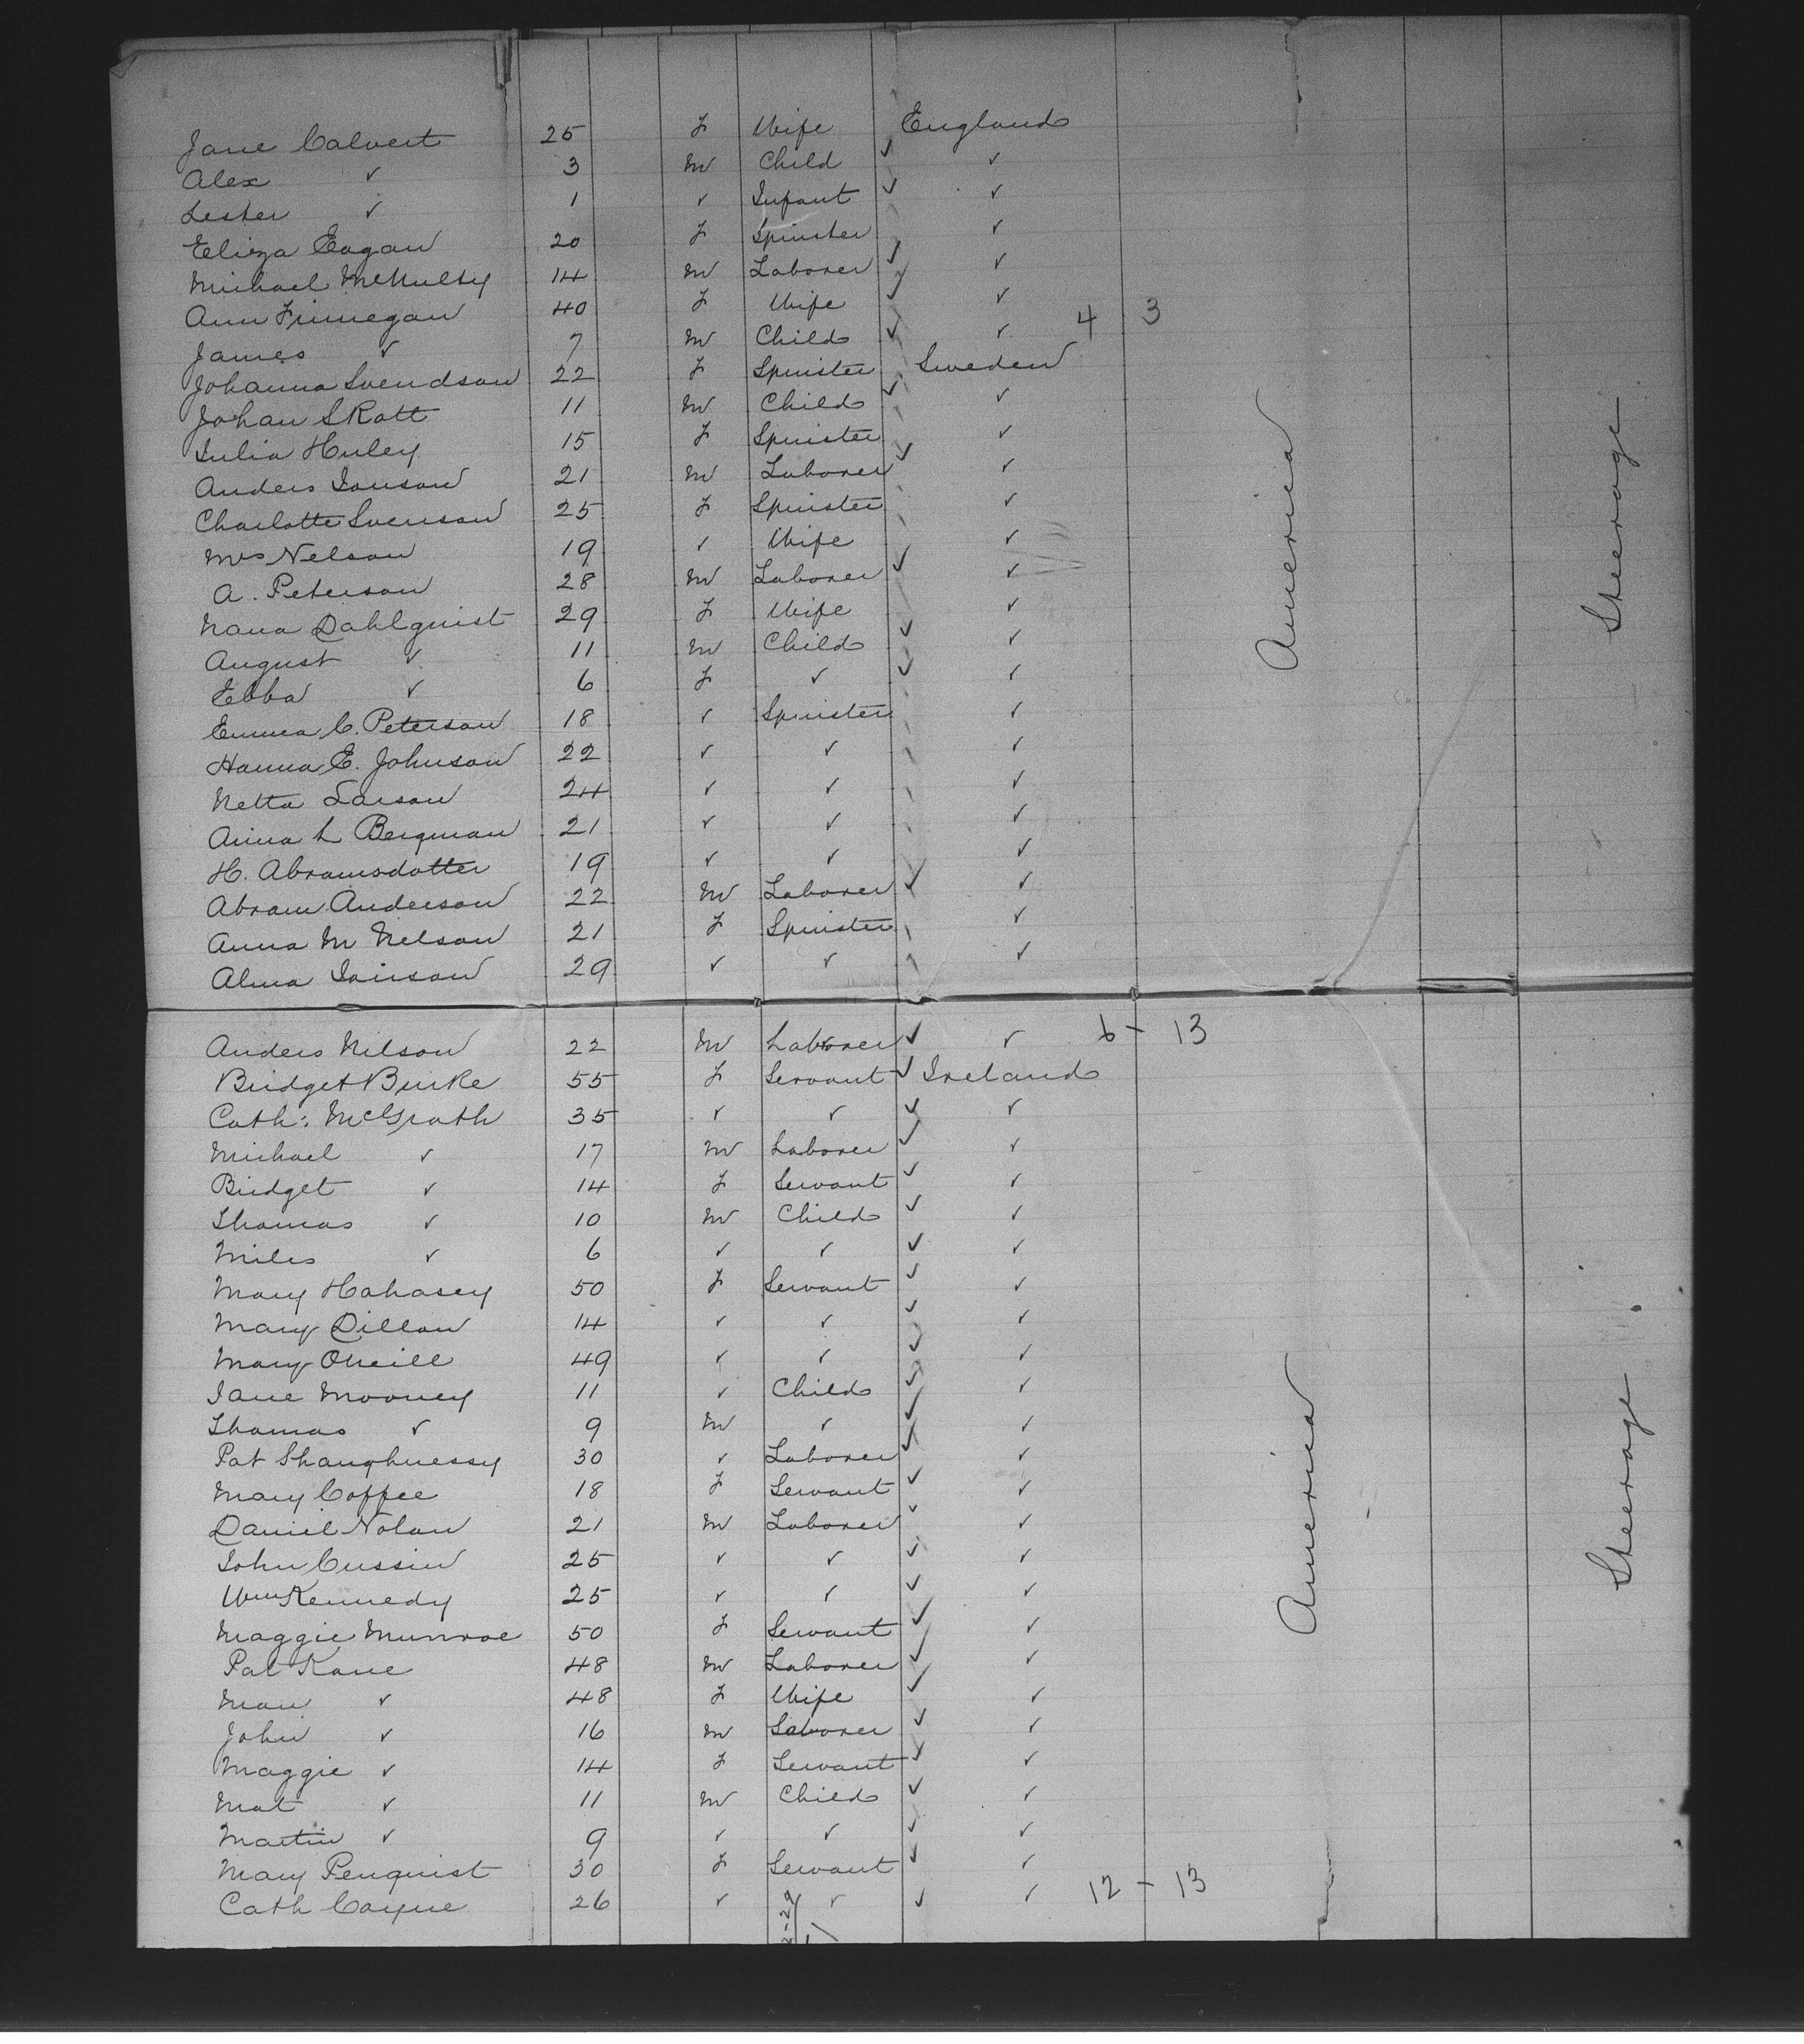 Jane Calvert 25 F Wife England
Alex ✓ 3 M Child ✓ ✓
Lester ✓ 1 ✓ Infant ✓ ✓
Eliza Eagan 20 F Spinster ✓
Michael McNulty 14 M Laborer ✓ ✓
Ann Finnegan 40 F Wife ✓ ✓
James ✓ 7 M Child ✓ ✓ 4 3
Johanna Svendson 22 F Spinster Sweden
Johan Skott 11 M Child ✓ ✓
Julia Huley 15 F Spinster ✓
Anders Janson 21 M Laborer ✓ ✓
Charlotte Svenson 25 F Spinster ✓
Mrs Nelson 19 ✓ Wife ✓
A. Peterson 28 M Laborer ✓ ✓
Nana Dahlquist 29 F Wife ✓
August ✓ 11 M Child ✓ ✓
Ebba ✓ 6 F ✓ ✓ ✓
Emma C. Peterson 18 ✓ Spinster ✓
Hanna E. Johnson 22 ✓ ✓ ✓
Netta Larson 24 ✓ ✓ ✓
Anna L Bergman 21 ✓ ✓ ✓
H. Abramsdotter 19 ✓ ✓ ✓
Abram Anderson 22 M Laborer ✓ ✓
Anna M Nelson 21 F Spinster ✓
Alma Janson 29 ✓ ✓ ✓
America
Steerage
Anders Nilson 22 M Laborer ✓ ✓ 6 - 13
Bridget Burke 55 F Servant ✓ Ireland
Cath: McGrath 35 ✓ ✓ ✓ ✓
Michael ✓ 17 M Laborer ✓ ✓
Bridget ✓ 14 F Servant ✓ ✓
Thomas ✓ 10 M Child ✓ ✓
Miles ✓ 6 ✓ ✓ ✓ ✓
Mary Hahasey 50 F Servant ✓ ✓
Mary Dillon 14 ✓ ✓ ✓ ✓
Mary ONeill 49 ✓ ✓ ✓ ✓
Jane Mooney 11 ✓ Child ✓ ✓
Thomas ✓ 9 M ✓ ✓ ✓
Pat Shaughnessy 30 ✓ Laborer ✓ ✓
Mary Coffee 18 F Servant ✓ ✓
Daniel Nolan 21 M Laborer ✓ ✓
John Cussin 25 ✓ ✓ ✓ ✓
Wm Kennedy 25 ✓ ✓ ✓ ✓
Maggie Munroe 50 F Servant ✓ ✓
Pat Kane 48 M Laborer ✓ ✓
Mary ✓ 48 F Wife ✓ ✓
John ✓ 16 M Laborer ✓ ✓
Maggie ✓ 14 F Servant ✓ ✓
Mat ✓ 11 M Child ✓ ✓
Martin ✓ 9 ✓ ✓ ✓ ✓
Mary Penquist 30 F Servant ✓ ✓
Cath Coyne 26 ✓ ✓ ✓ ✓ 12 - 13
America
Steerage